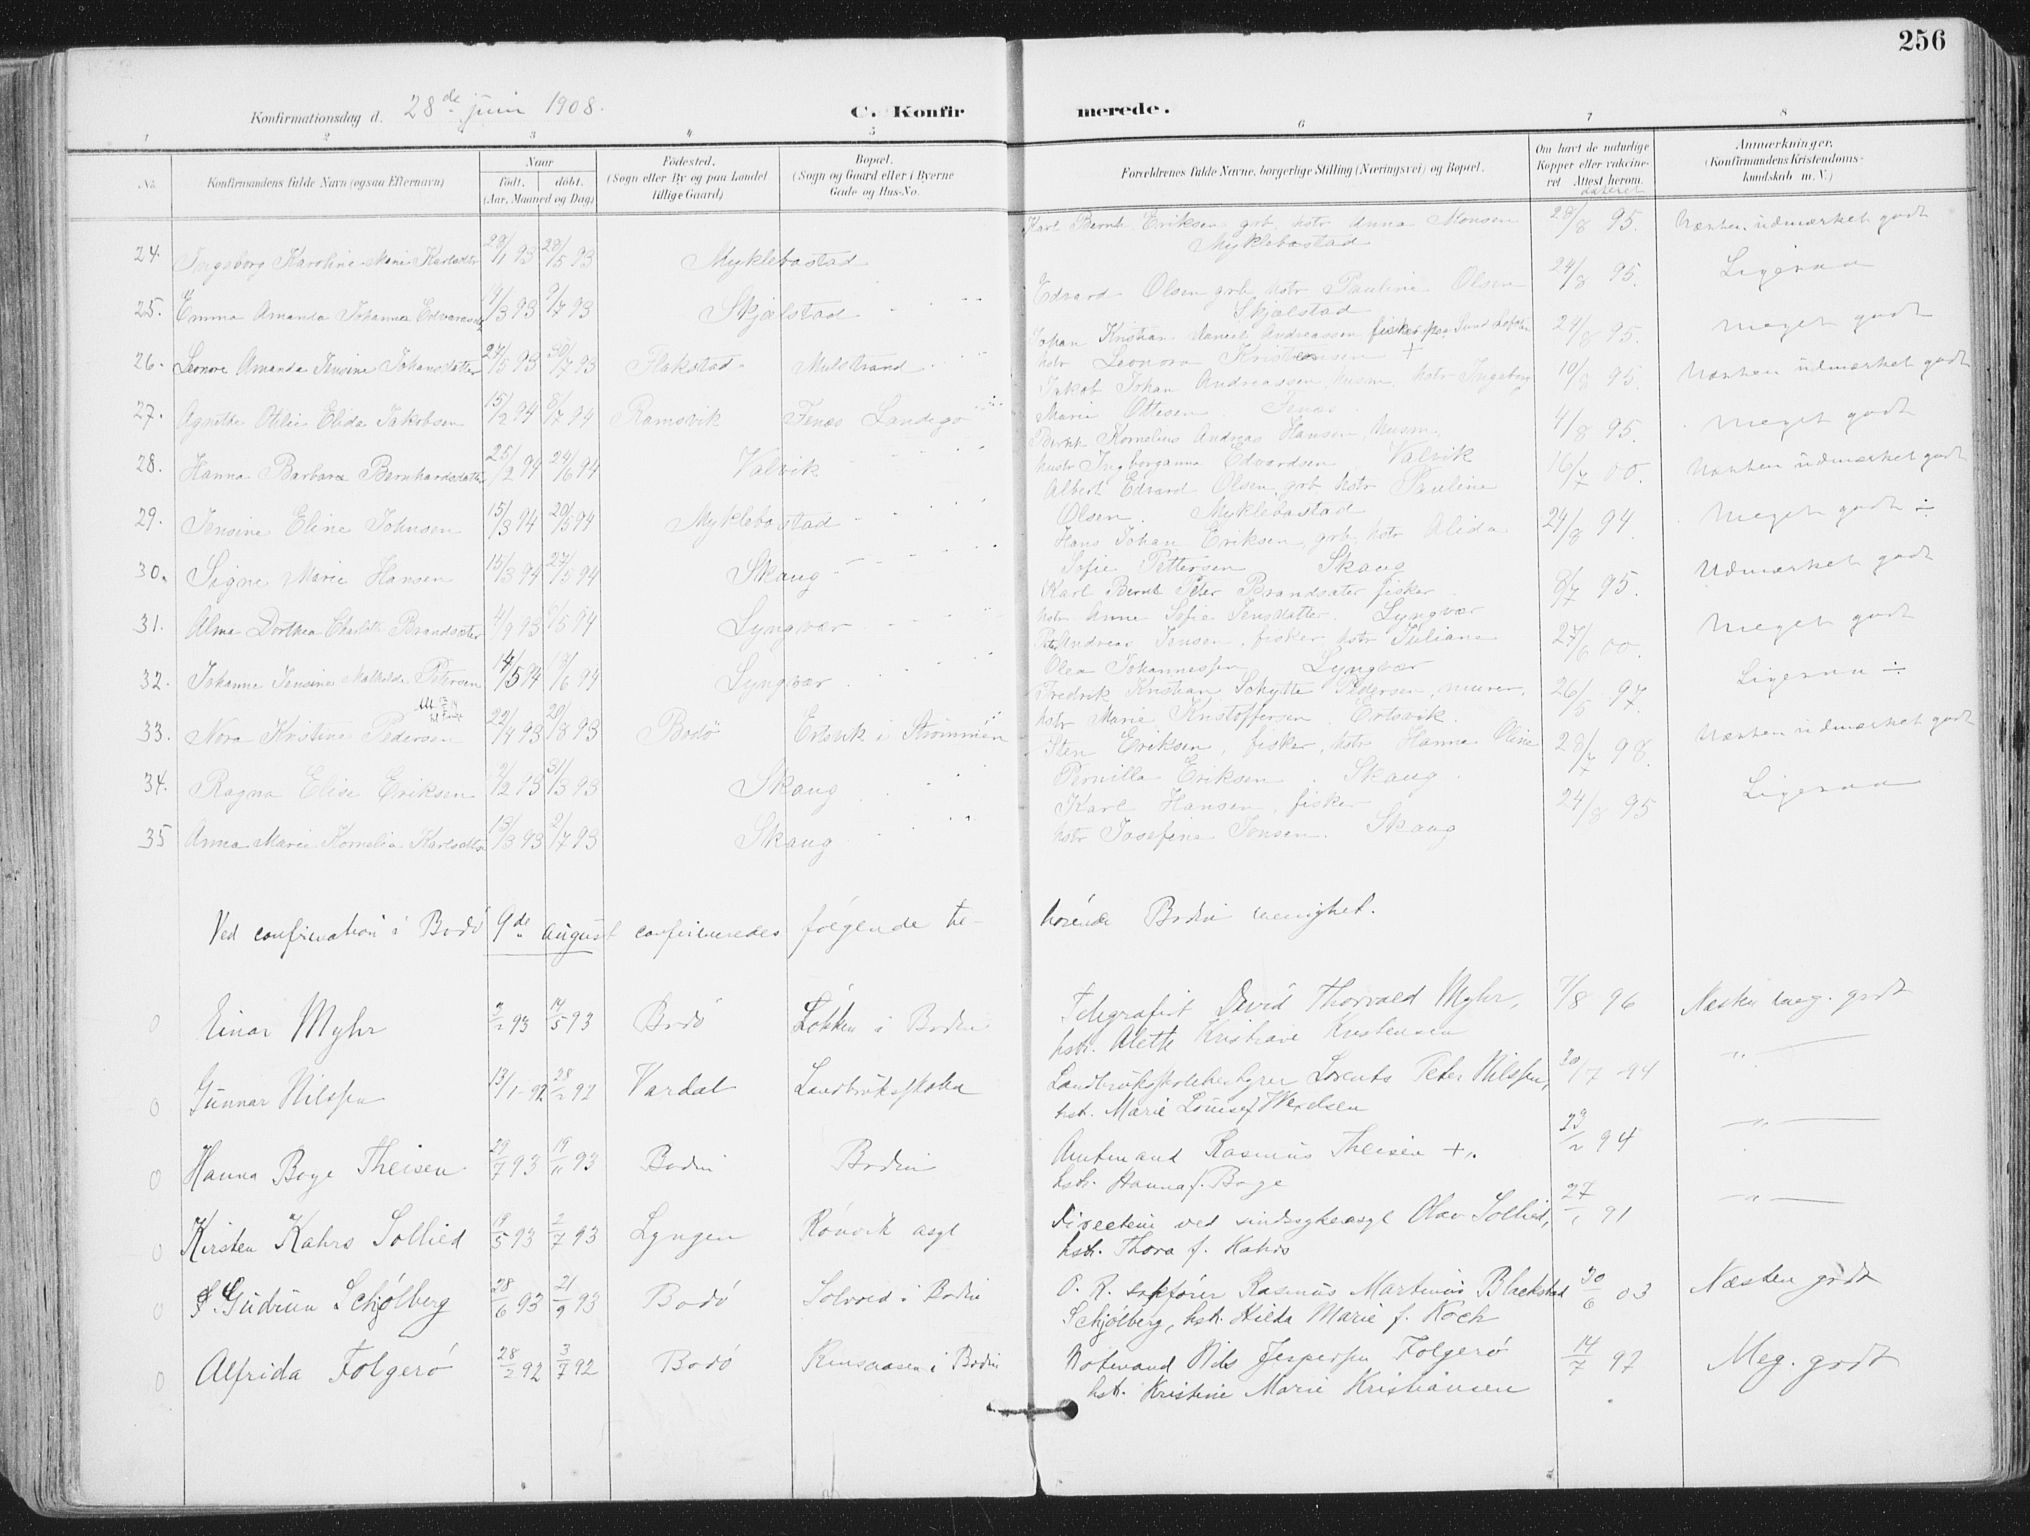 256
Konfirmationsdag d. 28de juni 1908.
C. Konfirmerede.
1 2 3 4 5 6 7 8
No. Konfirmandens fulde Navn (ogsaa Efternavn) Naar født. døbt. (Aar, Maaned og Dag) Fødested. (Sogn eller By og paa Landet tillige Gaard) Bopæl. (Sogn og Gaard eller i Byerne Gade og Hus-No. Forældrenes fulde Navne, borgerlige Stilling (Næringsvei) og Bopæl. Om havt de naturlige Kopper eller vakcineret Attest herom. dateret Anmærkninger, (Konfirmandens Kristendomskundskab m. V.)
24. Ingeborg Karoline Marie Karlsdtr 28/1 93 28/5 93 Myklebostad Karl Bernh. Eriksen grb. hstr Anna Monsen Myklebostad 28/8 95. Næsten udmærket godt
25. Emma Amanda Johanna Edvardsdtr 14/3 93 9/7 93 Skjælstad Edvard Olsen grb. hstr Pauline Olsen Skjælstad 24/8 95. Ligesaa
26. Leonore Amanda Jensine Johansdatter 27/5 93 30/7 93 Flakstad Mulstrand Johan Kristian Daniel Andreassen fisker paa Sund Lofoten hstr Leonora Kristensen + 24/8 95. Meget godt
27. Agnethe Otilie Elida Jakobsen 15/2 94 8/7 94 Ramsvik Fenes Landego Jakob Johan Andreassen, husm. hstr Ingeborg Marie Ottesen Fenes 10/8 95. Næsten udmærket godt
28. Hanna Barbara Bernhardsdatter 25/2 94 24/6 94 Valvik Bernh. Kornelius Andreas Hansen, husm. hustr Ingborganna Edvardsen Valvik 4/8 95. Meget godt
29. Jensine Eline Johnsen 15/3 94 20/5 94 Myklebostad Albert Edvard Olsen grb. hstr Pauline Olsen. Myklebostad 16/7 00. Næsten udmærket godt
30. Signe Marie Hansen 15/3 94 27/5 94 Skaug Hans Johan Eriksen grb. hstr Alida Sofie Pettersen Skaug 24/8 94. Meget godt ÷
31. Alma Dorthea Charlotte Brandsæter 4/9 93 6/5 94 Lyngvær Karl Bernt Peter Brandsæter fisker hstr Anne Sofie Jensdatter. Lyngvær 8/7 95. Udmærket godt
32. Johanne Jensine Mathilde Petersen 14/5 94 17/6 94 Lyngvær Peter Andreas Jensen, fisker, hstr Juliane Olea Johannessen Lyngvær 27/6 00. Meget godt
33. Nora Kristine Pedersen 22/4 93 20/8 93 Bodø Ertsvik i Strømmen Fredrik Kristian Schytte Pedersen, murer, hstr Marie Kristoffersen. Ertsvik. 26/5 97. Ligesaa ÷
34. Ragna Elise Eriksen 2/2 93 31/3 93 Skaug Sten Eriksen, fisker, hstr Hanna Oline Pernilla Eriksen. Skaug. 28/7 98. Næsten udmærket godt
35 Anna Marie Kornelia Karlsdtr 13/3 93 2/7 93 Skaug Karl Hansen, fisker hstr Josefine Jensen. Skaug 24/8 95 Ligesaa
Ved confirmation i Bodö 9de august confirmeredes følgende tilhørende Bodin menighet.
0 Einar Myhr 3/2 93 14/5 93 Bodö Løkken i Bodin Telegrafist David Thorvald Myhr, hstr. Aleth Kristiane Kristensen 7/8 96 Næsten meg. godt
0 Gunnar Nilssen 13/1-92 28/2 92 Vardal Landbruksskolen Landbruksskolebestyrer Lorents Peter Nilssen, hst. Marie Louise f. Wexelsen 30/7 94 — „ —
0 Hanna Boye Theisen 29/7 93 19/11 93 Bodin Bodin Amtmand Rasmus Theisen +. hstr. Hanna f. Boye 23/2 94 — „ —
0 Kirsten Kahrs Sollied 19/5 93 2/7 93 Lyngen Rönvik asyl Directeur ved sindssykeasyl Olav Sollied, hstr. Thora f. Kahrs 27/1 91 — „ —
0 Gudrun Schjölberg 28/6 93 21/9 93 Bodö Solvold i Bodin O. R. sakfører Rasmus Martinus Blackstad Schjölberg, hst. Hilda Marie f. Koch 30/6 03 Næsten godt
0 Alfrida Folgerö 28/2 92 3/7 92 Bodö Rensaasen i Bodin Notmand Nils Jespersen Folgerö hst. Kristine Marie Kristiansen 14/7 97 Meg. godt